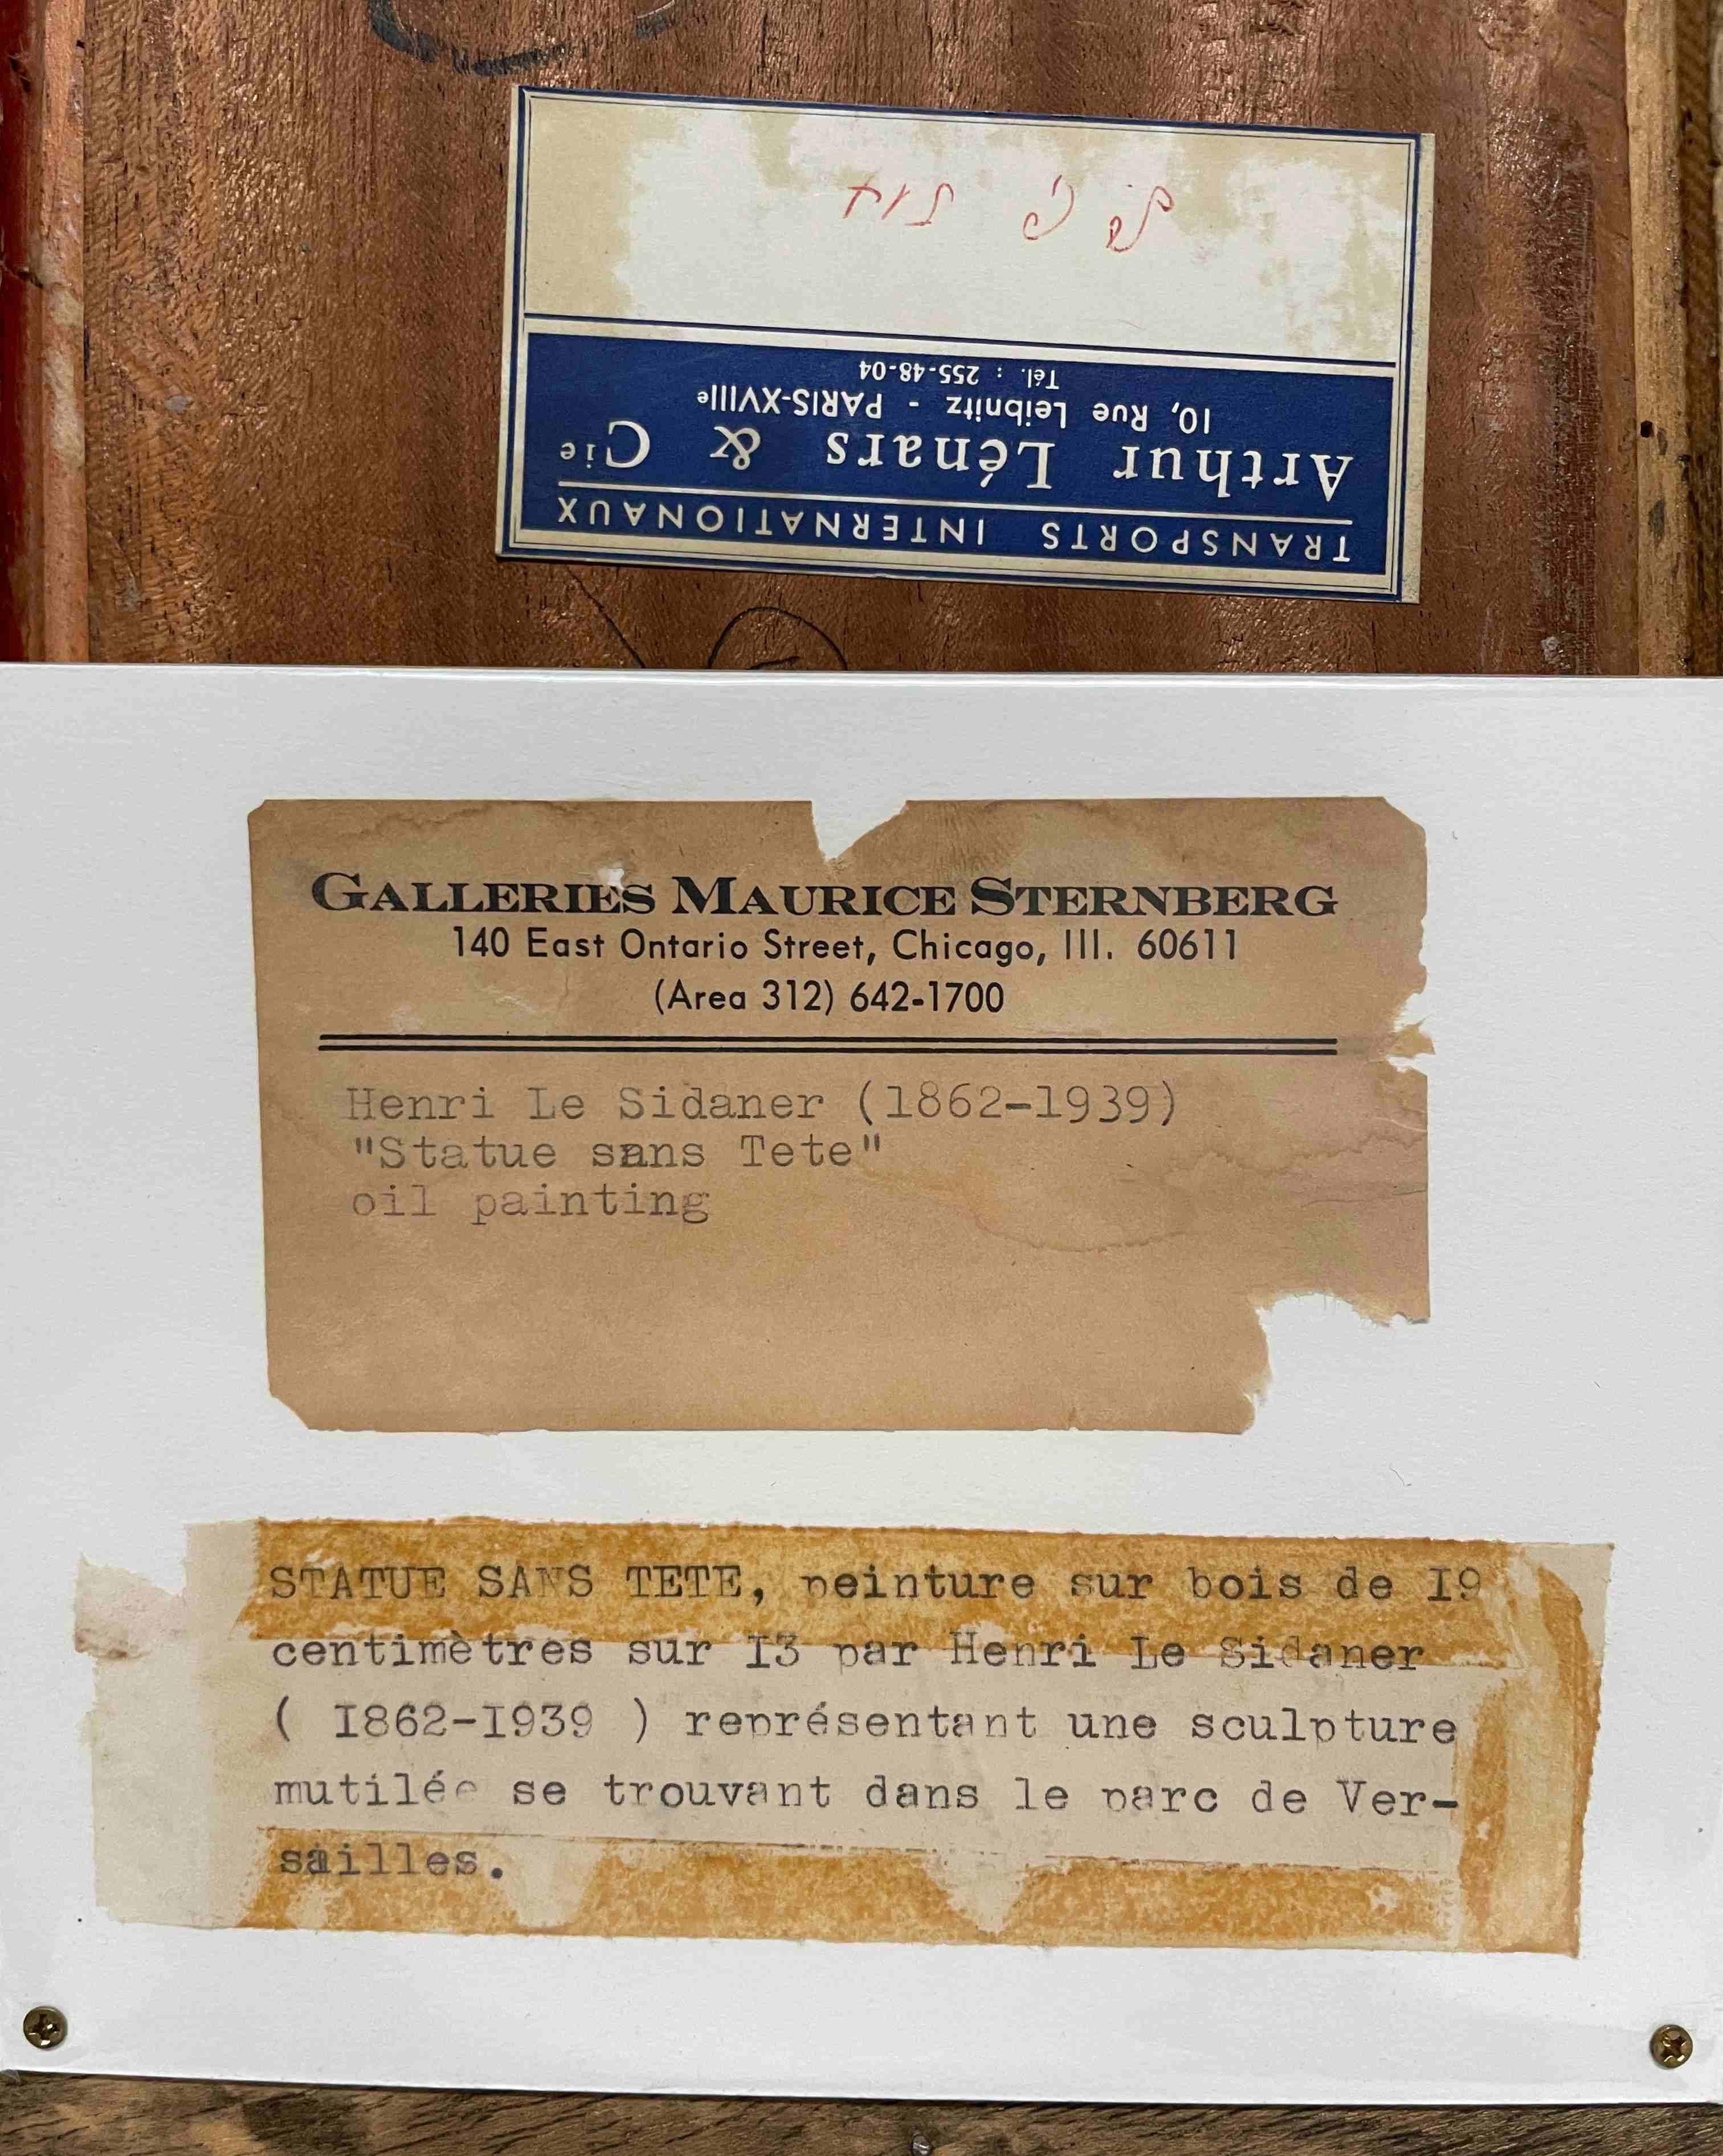 TRANSPORTS INTERNATIONAUX
Arthur Lénars & Cie
10, Rue Leibnitz - PARIS-XVIIIe
Tél. : 255-48-04
GALLERIES MAURICE STERNBERG
140 East Ontario Street, Chicago, Ill. 60611
(Area 312) 642-1700
Henri Le Sidaner (1862-1939)
"Statue sans Tete"
oil painting
STATUE SANS TETE, peinture sur bois de I9
centimètres sur I3 par Henri Le Sidaner
( I862-I939 ) représentant une sculpture
mutilée se trouvant dans le parc de Ver-
sailles.